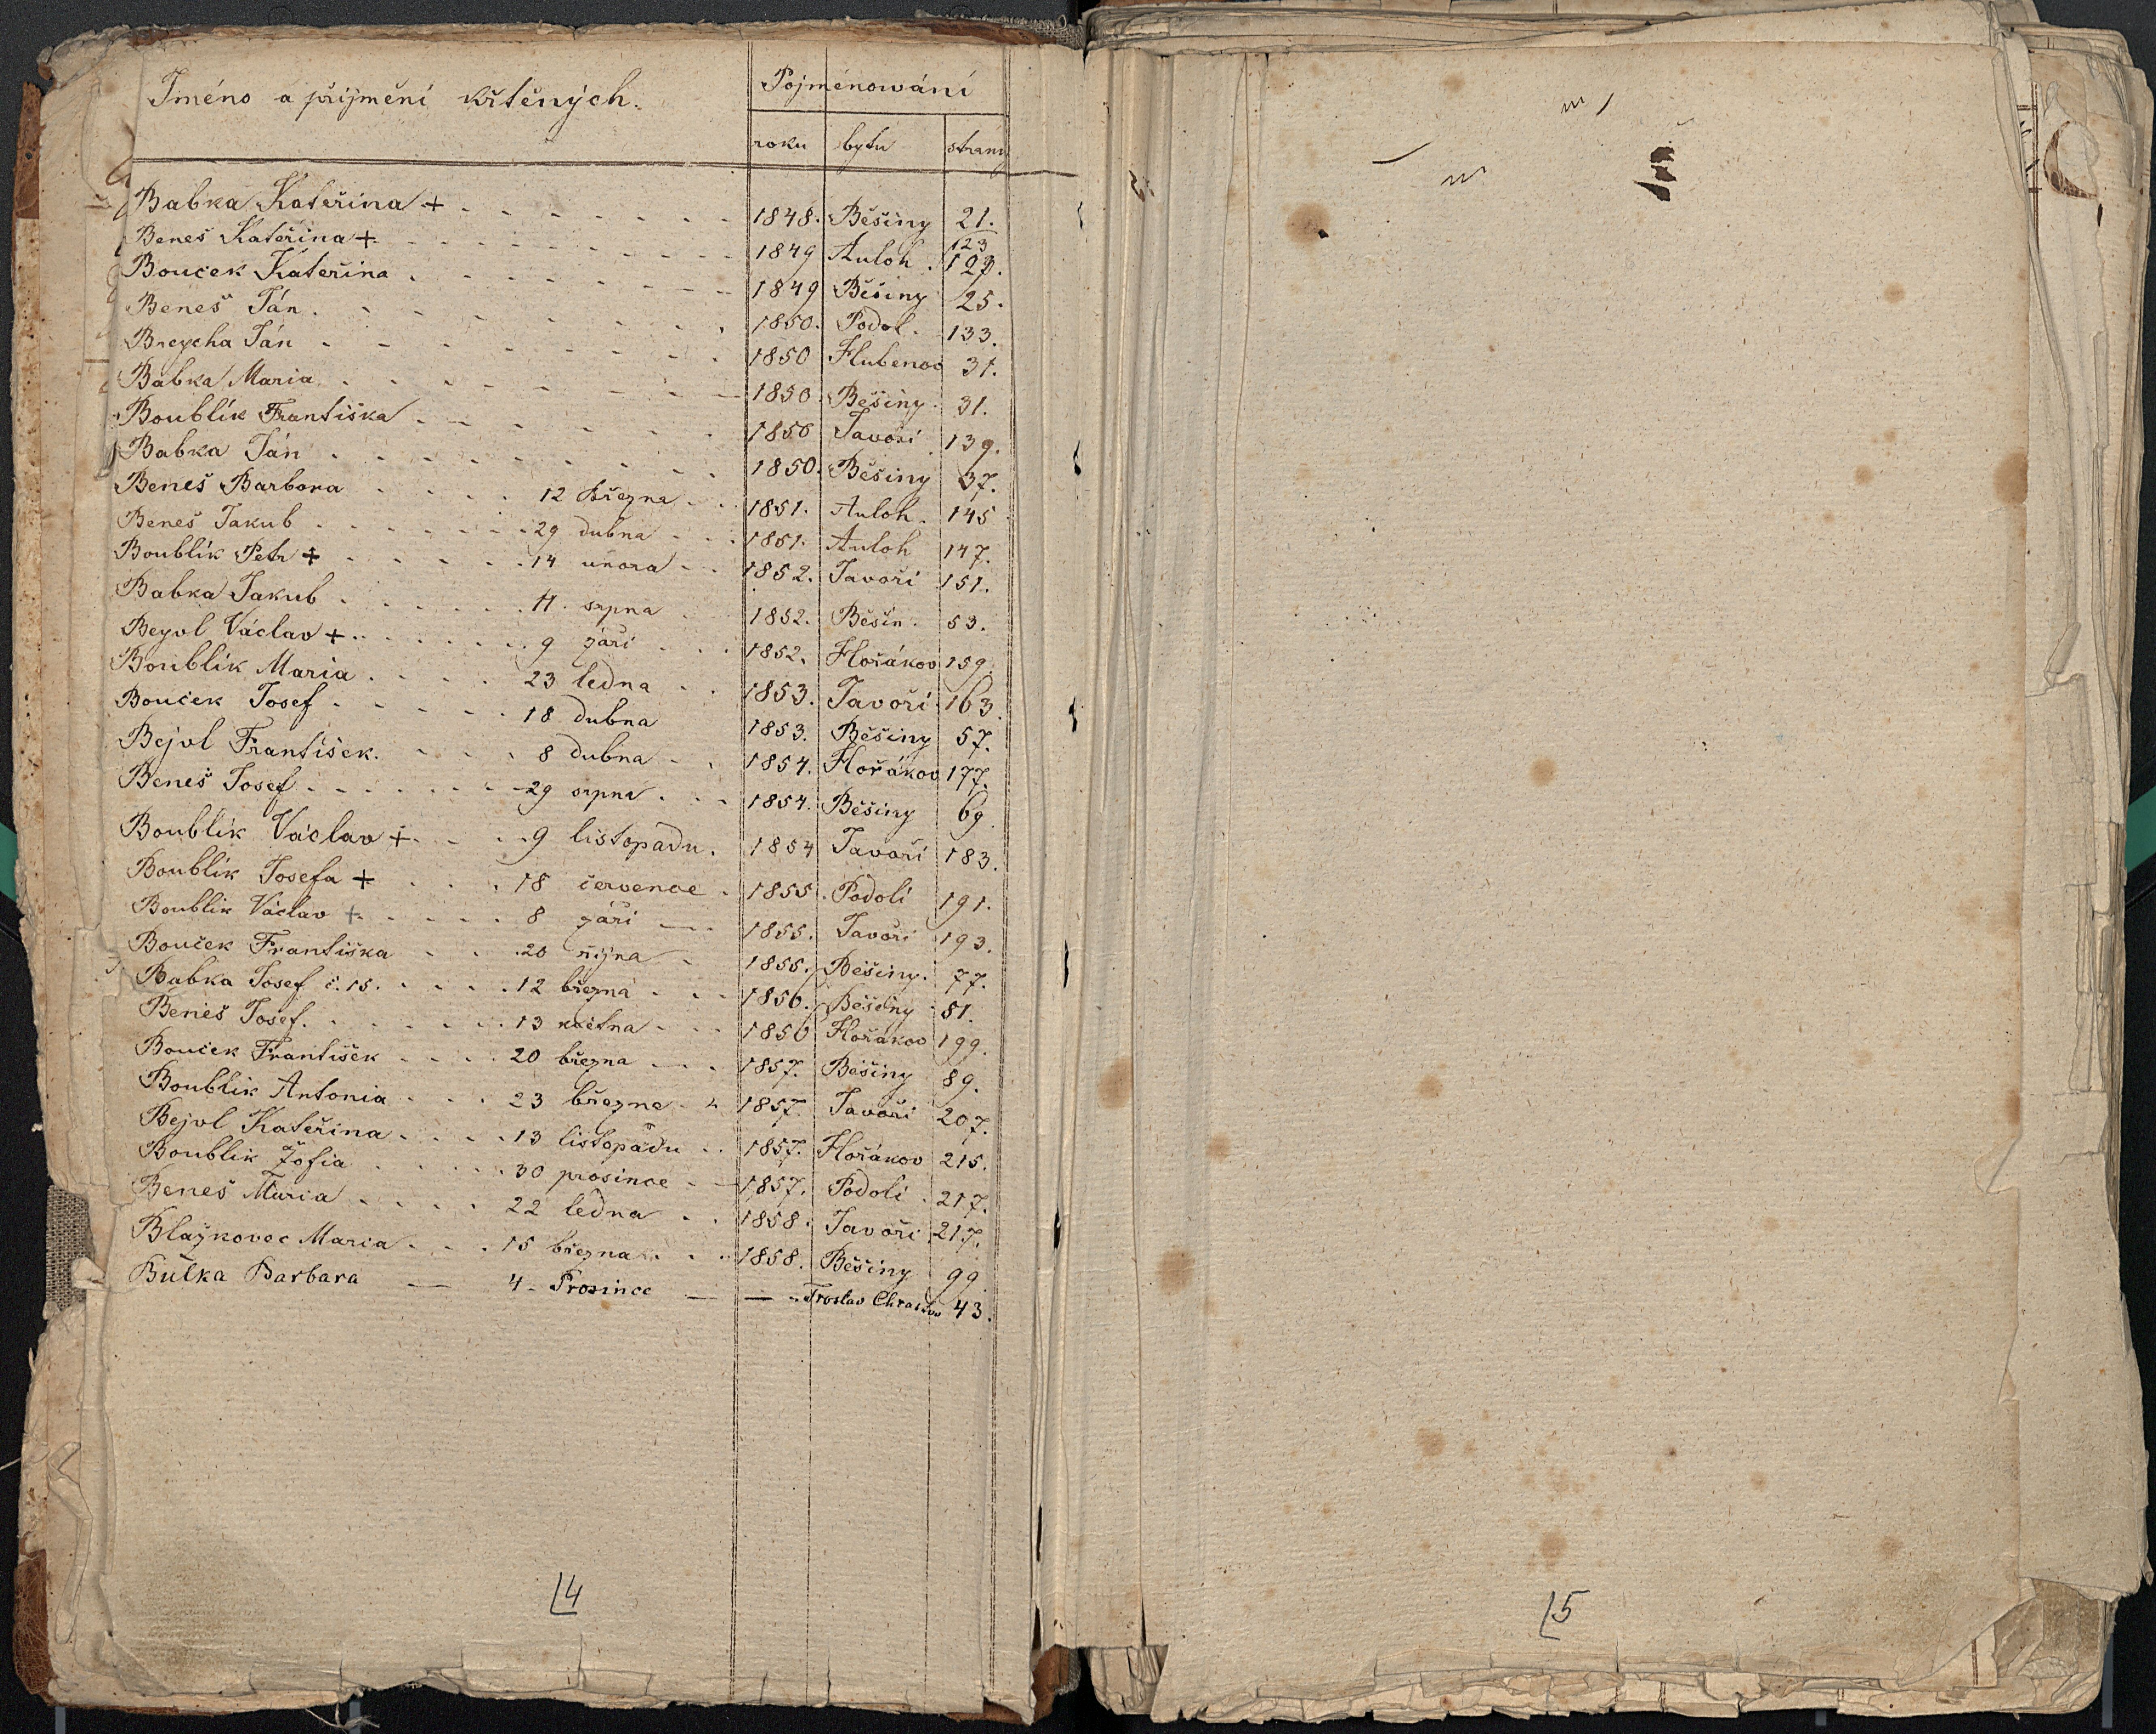 Jméno a přijmění křtěných. Pojménowání
roku bytu strany
Babka Kateřina + 1848. Běšiny 21.
Beneš Kateřina + 1849 Auloh. 123 127.
Bouček Kateřina 1849 Běšiny 25.
Beneš Ján. 1850. Podol. 133.
Breycha Ján 1850 Hlubenov 31.
Babka Maria 1850. Běšiny. 31.
Boublík Františka 1850 Javoři 139.
Babka Ján 1850. Běšiny 37.
Beneš Barbora 12 března 1851. Auloh. 145
Beneš Jakub 29 dubna 1851. Auloh 147.
Boublík Petr + 14 unora 1852. Javoři 151.
Babka Jakub 11. srpna 1852. Běšin. 53.
Beyvl Václav + 9 záři 1852. Hořákov 159.
Boublík Maria 23 ledna 1853. Javoři 163.
Bouček Josef 18 dubna 1853. Běšiny 57.
Bejvl František. 8 dubna 1854. Hořákov 177.
Beneš Josef 29 srpna 1854. Běšiny 69.
Boublík Václav + 9 listopadu. 1854 Javoři 183.
Boublík Josefa + 18 července 1855. Podoli 191.
Boublík Václav + 8 záři 1855. Javoři 193.
Bouček Františka 20 řijna 1855. Běšiny. 77.
Babka Josef č. 15. 12 března 1856. Běšiny 81.
Beneš Josef. 13 května 1856 Hořákov 199.
Bouček František 20 března 1857. Běšiny 89.
Boublík Antonia 23 března 1857. Javoři 207.
Bejvl Kateřina 13 listopadu 1857. Hořákov 215.
Boublík Žofia 30 prosince 1857. Podoli 217.
Beneš Maria 22 ledna 1858. Javoři 217.
Blažkovec Maria 15 března 1858. Běšiny 99.
Bulka Barbara — 4 Prosince — — 43.
4
5